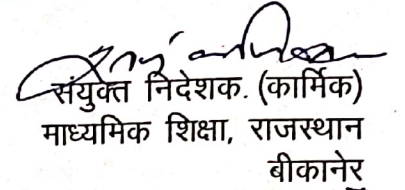 संयुक्त निदेशक. (कार्मिक)
माध्यमिक शिक्षा, राजस्थान
बीकानेर